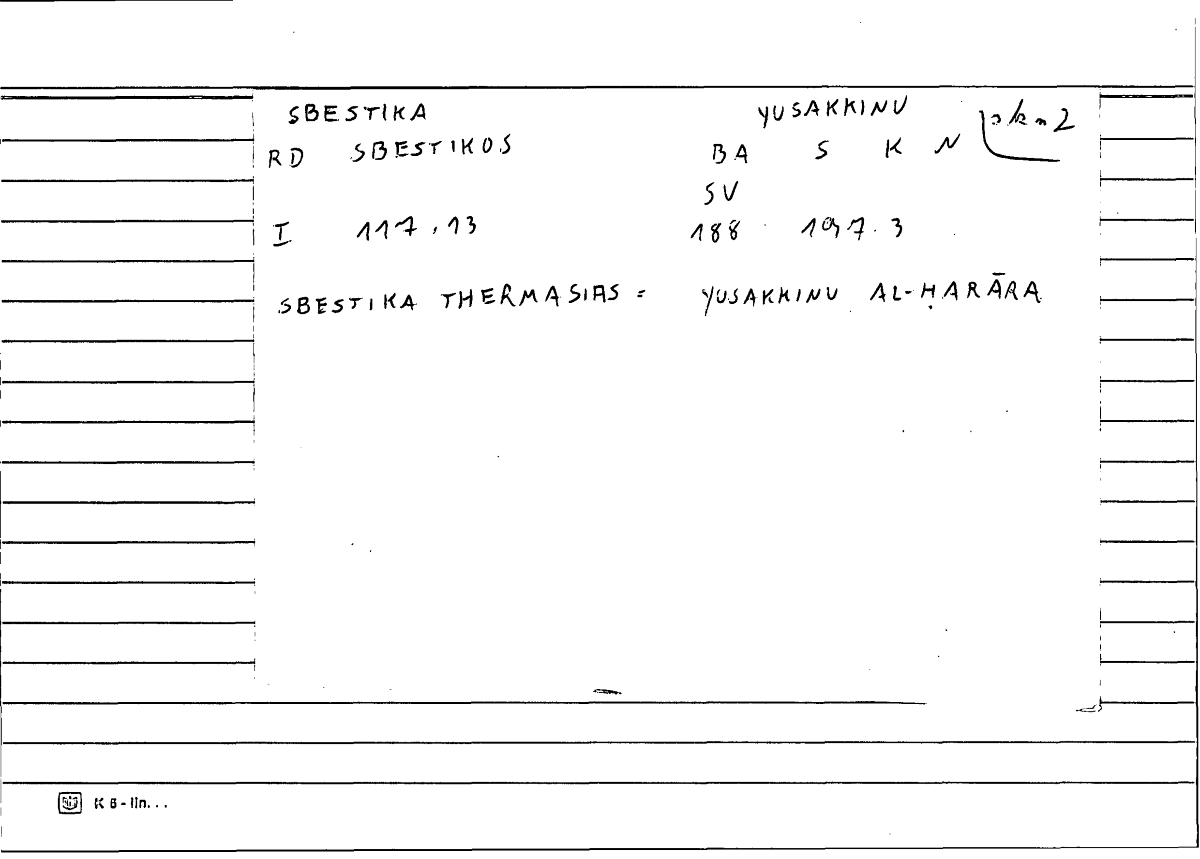 SBESTIKA YUSAKKINU skn 2
RD SBESTIKOS BA S K N
SV
I 117,13 188 197.3
SBESTIKA THERMASIAS = YUSAKKINU AL-ḤARĀRA
K 6 - lin...